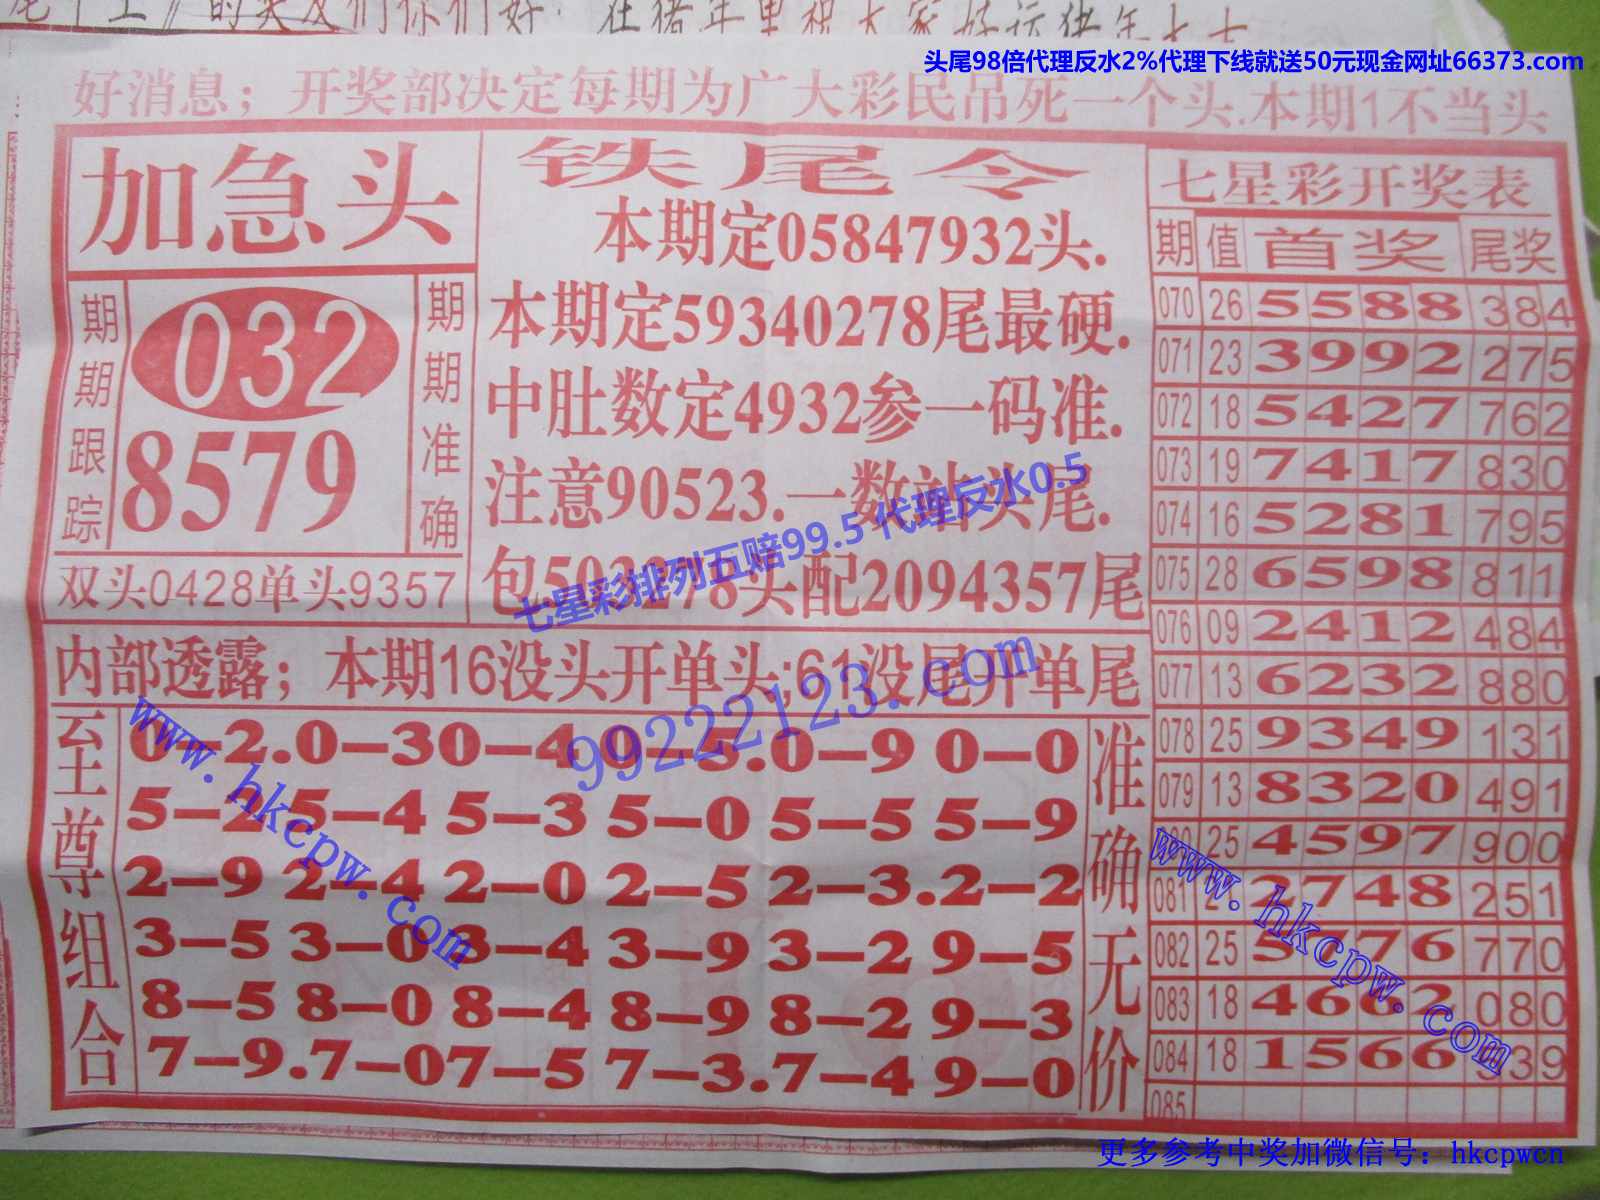 头尾98倍代理反水2%代理下线就送50元现金网址66373.com
好消息；开奖部决定每期为广大彩民吊死一个头.本期1不当头
加急头
期期跟踪
032
8579
期期准确
双头0428单头9357
铁尾令
本期定05847932头.
本期定59340278尾最硬.
中肚数定4932参一码准.
注意90523.一数站头尾.
头配2094357尾
七星彩排列五赔99.5 代理反水0.5
内部透露；本期16没头开单头;61没尾开单尾
99222123.com
至尊组合
0–2.0–30–4 0–5.0–9 0–0
5–2 5–4 5–3 5–0 5–5 5–9
2–9 2–4 2–0 2–5 2–3.2–2
3–5 3–0 3–4 3–9 3–2 9–5
8–5 8–0 8–4 8–9 8–2 9–3
7–9.7–07–5 7–3.7–4 9–0
准确无价
www.hkcpw.com
七星彩开奖表
期 值 首奖 尾奖
070 26 5588 384
071 23 3992 275
072 18 5427 762
073 19 7417 830
074 16 5281 795
075 28 6598 811
076 09 2412 484
077 13 6232 880
078 25 9349 131
079 13 8320 491
25 4597 900
081 2748 251
082 25 5776 770
083 18 4662 080
084 18 1566 939
085
www.hkcpw.com
更多参考中奖加微信号：hkcpwcn